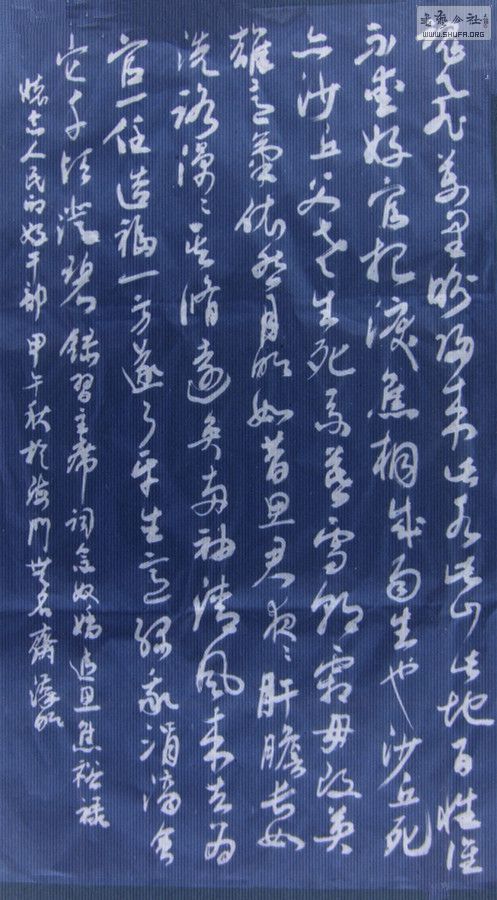 書藝公社
WWW.SHUFA.ORG
魂飞萬里盼歸来此水此山此地百姓谁
不爱好官把淚焦桐成雨生也沙丘死
亦沙丘父老生死系暮雪朝霜毋改英
雄意氣依然月明如昔思君夜〻肝膽长如
洗路漫〻其脩遠矣两袖清风来去为
官一任造福一方遂了平生意绿我涓滴会
它千顷澄碧 錄習主席词念奴嬌追思焦裕禄
人民的好干部 甲午秋於海门齋